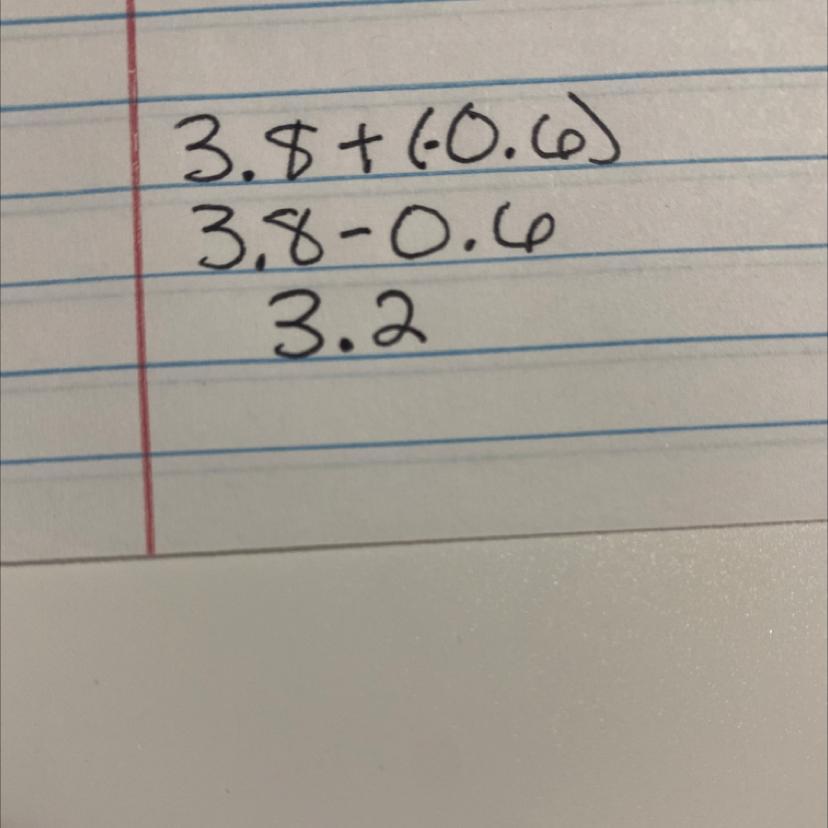 3.8 + (-0.6)
3.8 - 0.6
3.2